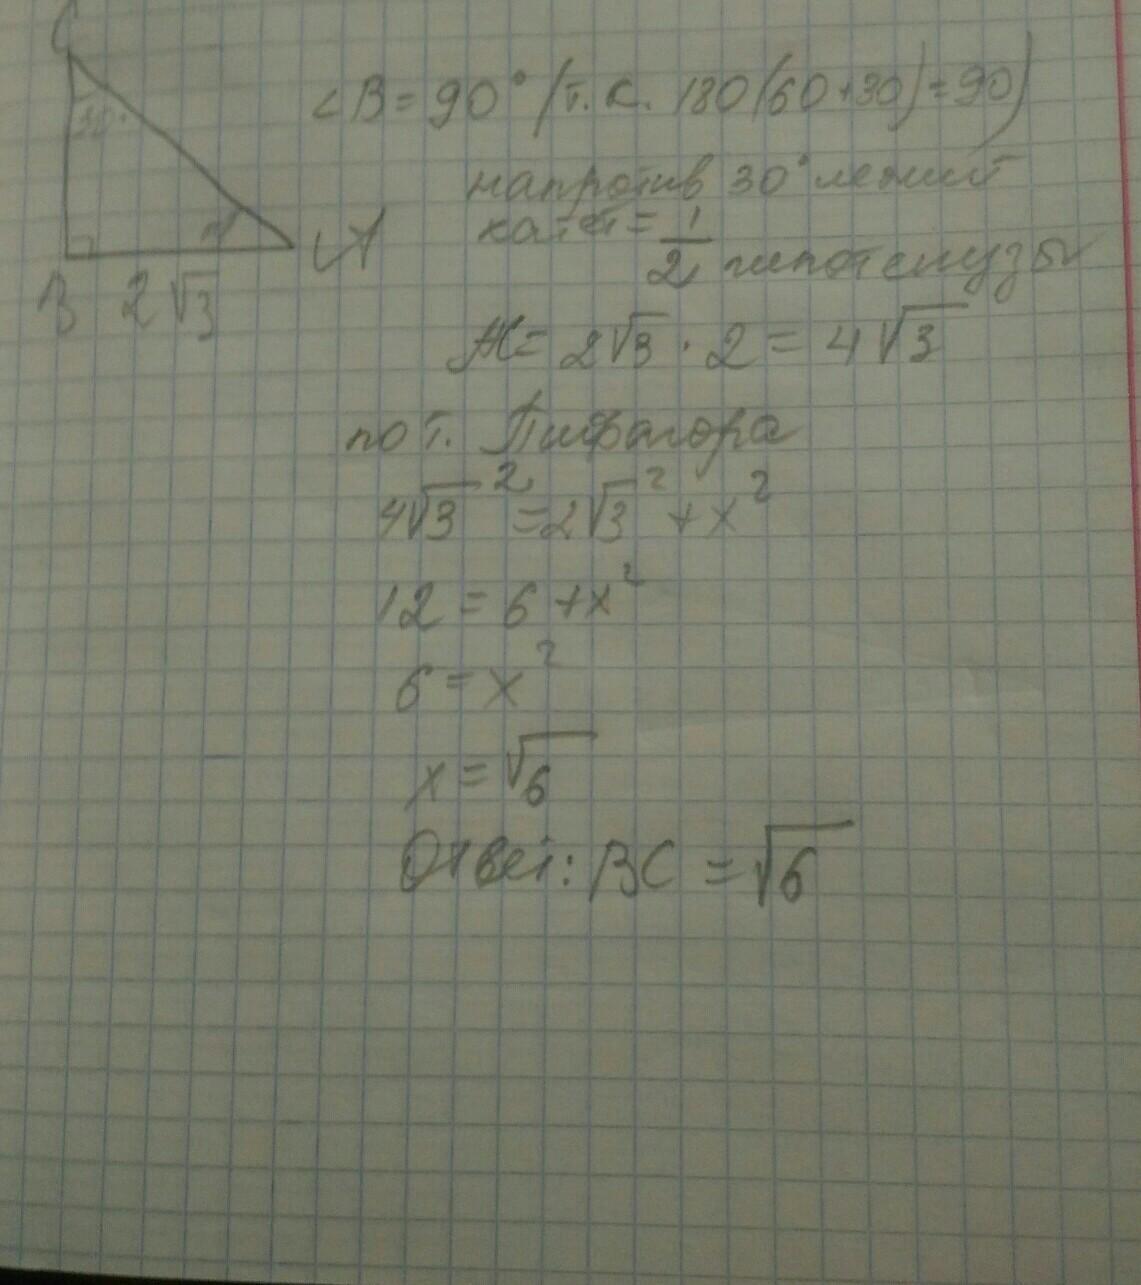 C
30°
B 2√3
A
∠B = 90° (т.к. 180(60+30)=90)
напротив 30° лежит
катет = 1/2 гипотенузы
AC = 2√3 · 2 = 4√3
по т. Пифагора
4√3² = 2√3² + x²
12 = 6 + x²
6 = x²
x = √6
Ответ: BC = √6